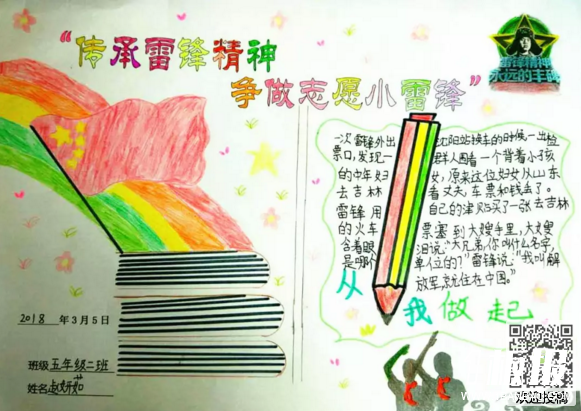 “传承雷锋精神
争做志愿小雷锋”
雷锋精神
永远的丰碑
一次雷锋外出 沈阳站换车的时候一出检
票口,发现一 群人围着一个背着小孩
的中年妇 女,原来这位妇女从山东
去吉林 看丈夫,车票和钱丢了。
雷锋用 自己的津贴买了一张去吉林
的火车 票塞到大嫂手里,大嫂
含着眼 泪说:“大兄弟,你叫什么名字,
是哪个 单位的?”雷锋说:“我叫解
放军,就住在中国。”
从我做起
2018年3月5日
班级五年级二班
姓名赵妍茹